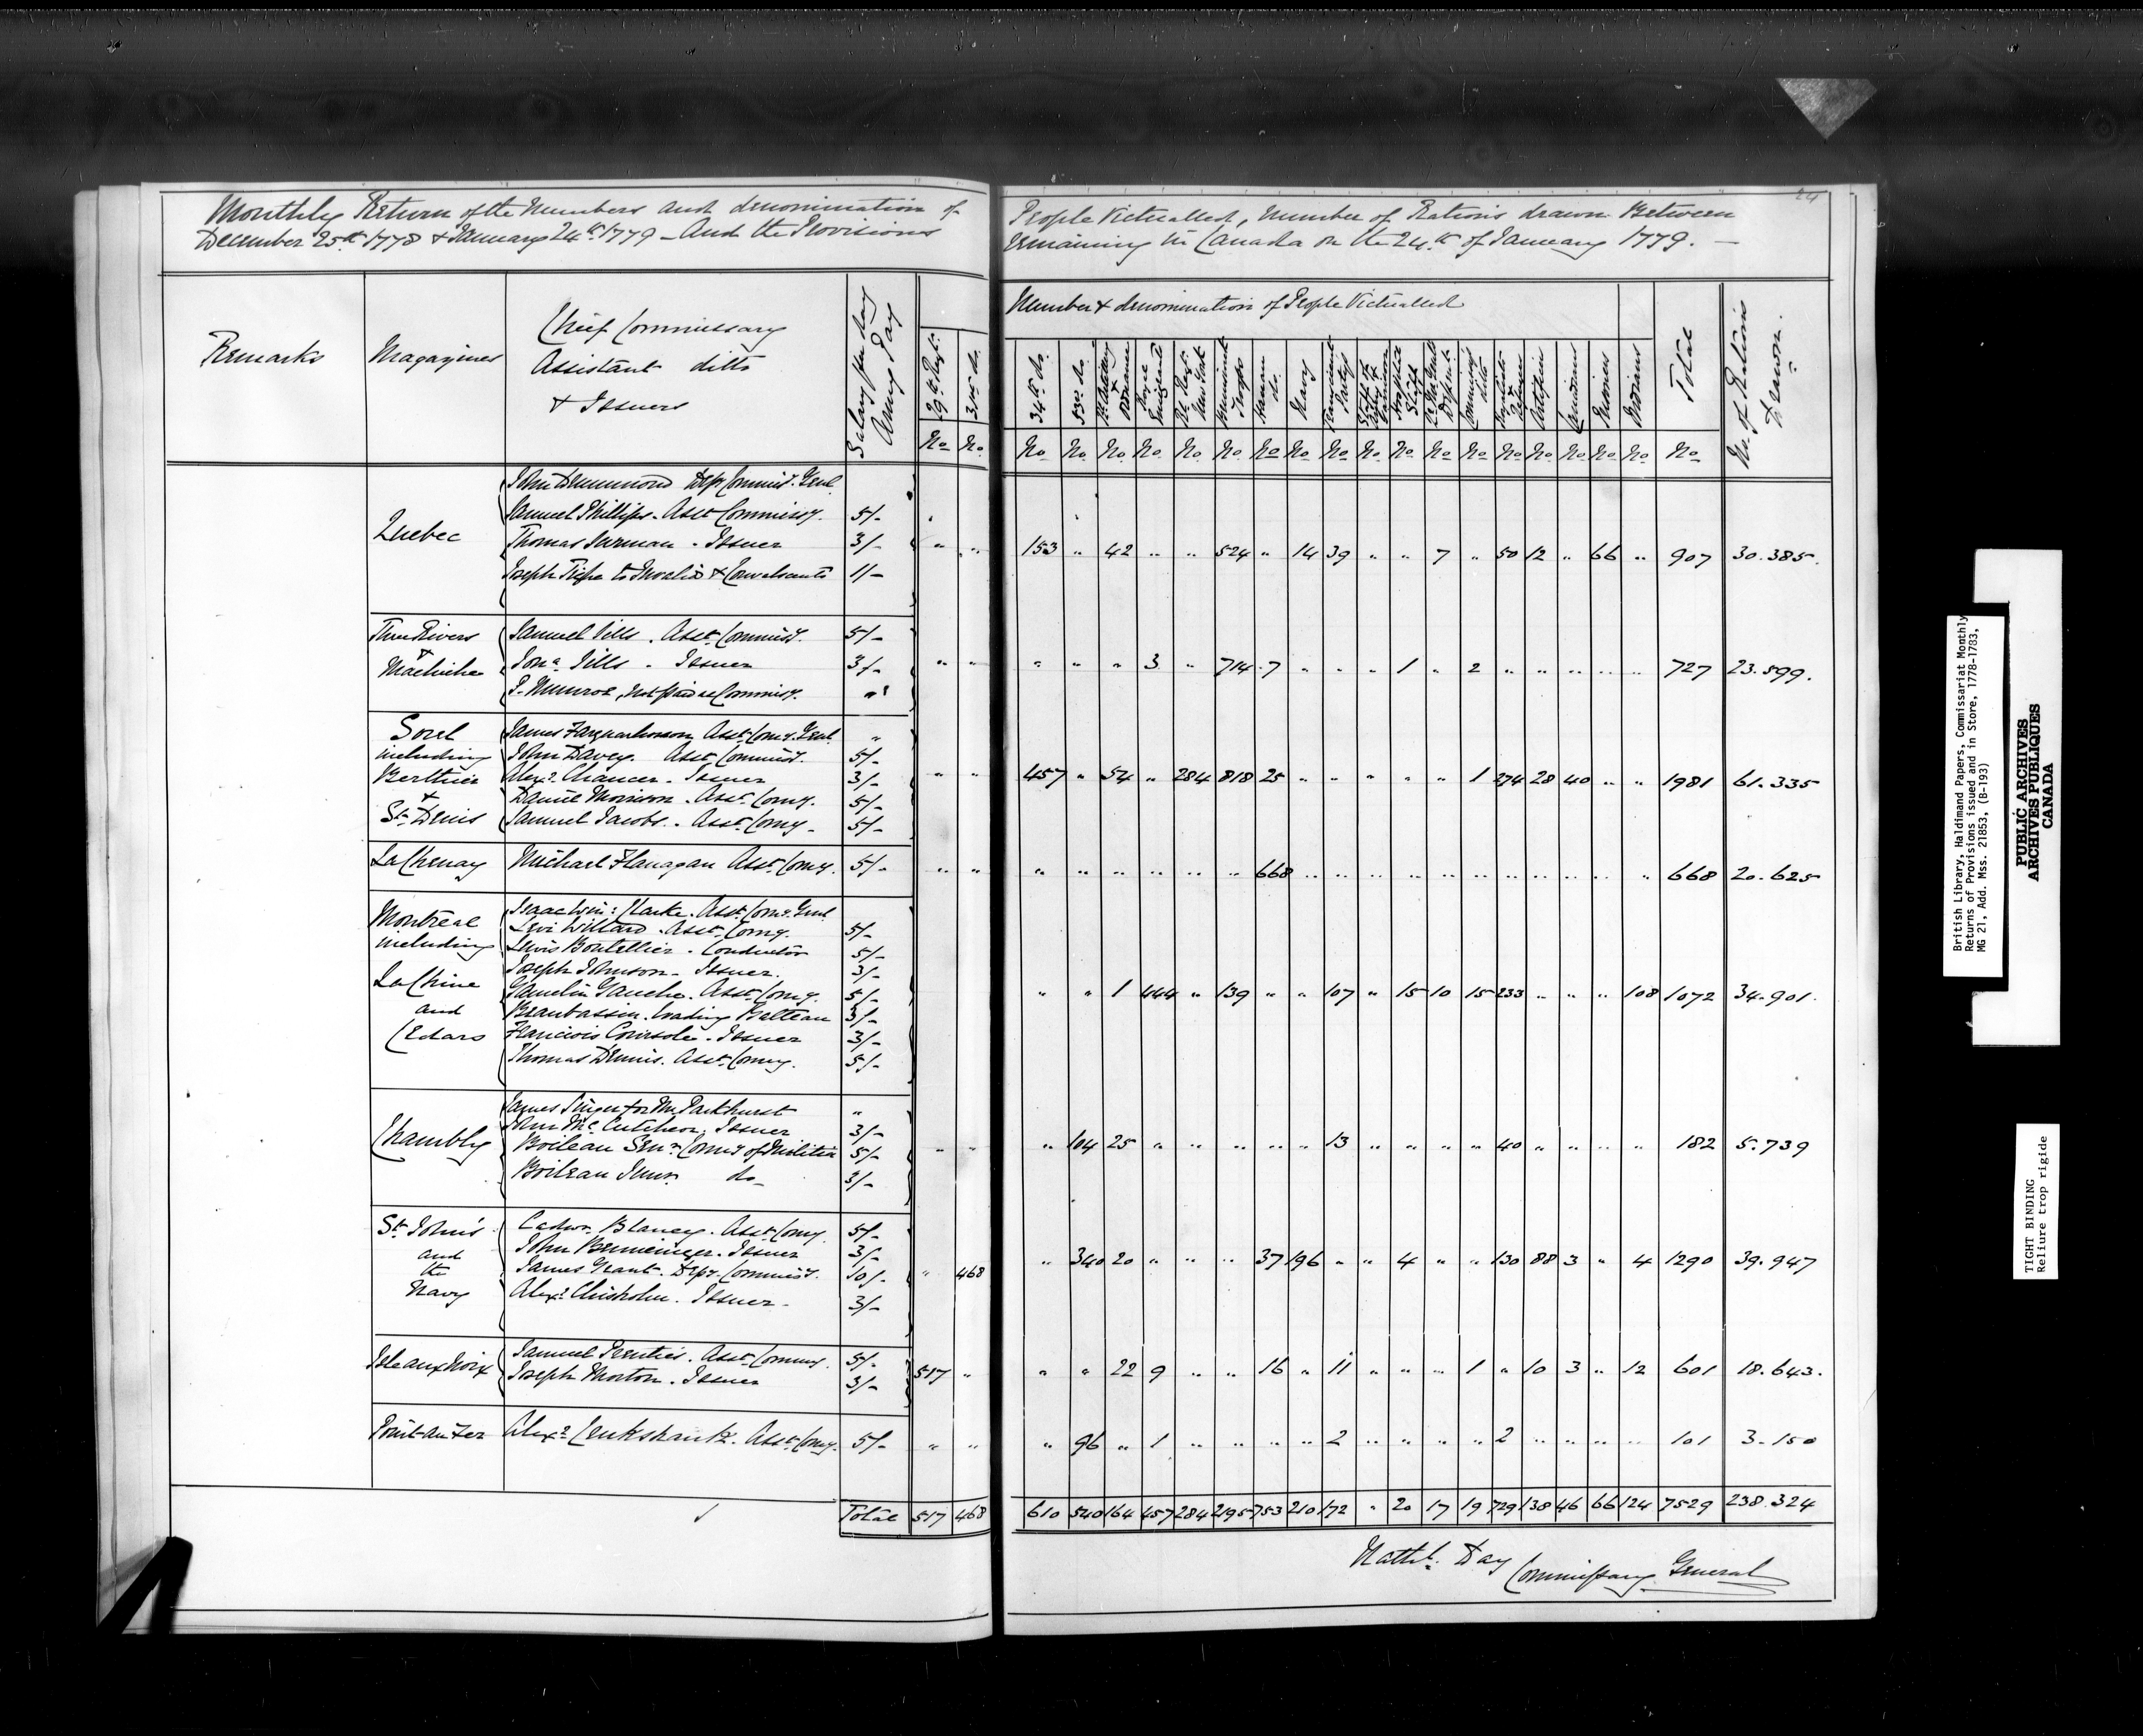 24
Monthly Return of the Numbers and denomination of People Victualled, Number of Rations drawn Between
December 25th 1778 & January 24th 1779 - And the Provisions remaining in Canada on the 24th of January 1779. -
Remarks
Magazines
Chief Commissary
Assistant ditto
& Issuers
Salary per day
Army Pay
Number & denomination of People Victualled
29th Regt.
31st do.
34th do.
53d do.
Rl. Artillery & Ordnance
Royal Emigrants
Rl. Regt. New York
Brunswick Troops
Hanau do.
Navy
Transient Partys
Hospital Staff
Qr. Mr. Genl's Departt.
Commissys ditto
Loyalists &
Artificers
Canadians
Prisoners
Indians
Total
No. of Rations Drawn.
No No No No No No No No No No No No No No No No No No No No No No
Quebec
John Drummond Depy Commiss. Genl.
Samuel Phillips - Asst Commissy. 5/-
Thomas - Issuer 3/-
Joseph to Invalids & Convalescents 1/-
" " 153 " 42 " " 524 " 14 39 " " 7 " 50 12 " 66 " 907 30.385.
Three Rivers
&
Machiche
Samuel Sills . Asst. Commissy. 5/-
Jona Sills - Issuer 3/-
P. Munroe, Not paid as Commissy. "
" " " " " 3 " 714 7 " " " 1 " 2 " " " " " 727 23.599.
Sorel
including
Berthier
&
St. Denis
James Farquharson Asst. Comy. Genl. "
John Davey. Asst Commissy. 5/-
Alexr. Chancer - Issuer 3/-
Daniel Morrison . Asst. Comy. 5/-
Samuel Jacobs . Asst. Comy - 5/-
" " 457 " 54 " 284 818 25 " " " " " 1 274 28 40 " " 1981 61.335
La Chenay
Michael Flanagan Asst. Comy. 5/-
" " " " " " " " 668 " " " " " " " " " " " 668 20.625
Montreal
including
La Chine
and
Cedars
Isaac Win: Clarke . Asst. Comy. Genl.
Levi Willard . Asst. Comy. 5/-
Lewis Boutellier . Conductor 5/-
Joseph Johnson - Issuer. 3/-
Gamelin Gauche . Asst. Comy. 5/-
Beaubassin . loading Batteau 3/-
Francois Coursole . Issuer 3/-
Thomas Dennis . Asst. Comy. 5/-
" " 1 444 " 139 " " 107 " 15 10 15 233 " " " 108 1072 34.901.
Chambly
James Singer for Mr. Parkhurst "
John McCutcheon . Issuer 3/-
Boileau Senr. Comy of Militia 5/-
Boileau Junr. do- 3/-
" " " 104 25 " " " " " 13 " " " " 40 " " " " 182 5.739
St. John's
and
the
Navy
Cadwr. Blaney . Asst. Comy. 5/-
John . Issuer 3/-
James Grant . Depy. Commissy. 10/-
Alexr. Chisholm . Issuer - 3/-
" 468 " 340 20 " " " 37 196 " " 4 " " 130 88 3 " 4 1290 39.947
Isle aux Noix
Samuel Prenties . Asst. Commy. 5/-
Joseph Morton . Issuer 3/-
517 " " " 22 9 " " 16 " 11 " " " 1 " 10 3 " 12 601 18.643.
Point au Fer
Alexr. Cruikshank . Asst. Comy. 5/-
" " " 96 " 1 " " " " 2 " " " " 2 " " " " 101 3.150
Total 517 468 610 540 164 457 284 2195 753 210 172 " 20 17 19 729 138 46 66 124 7529 238.324
Nathl. Day Commissary General
British Library, Haldimand Papers, Commissariat Monthly
Returns of Provisions issued and in Store, 1778-1783,
MG 21, Add. Mss. 21853, (B-193)
PUBLIC ARCHIVES
ARCHIVES PUBLIQUES
CANADA
TIGHT BINDING
Reliure trop rigide